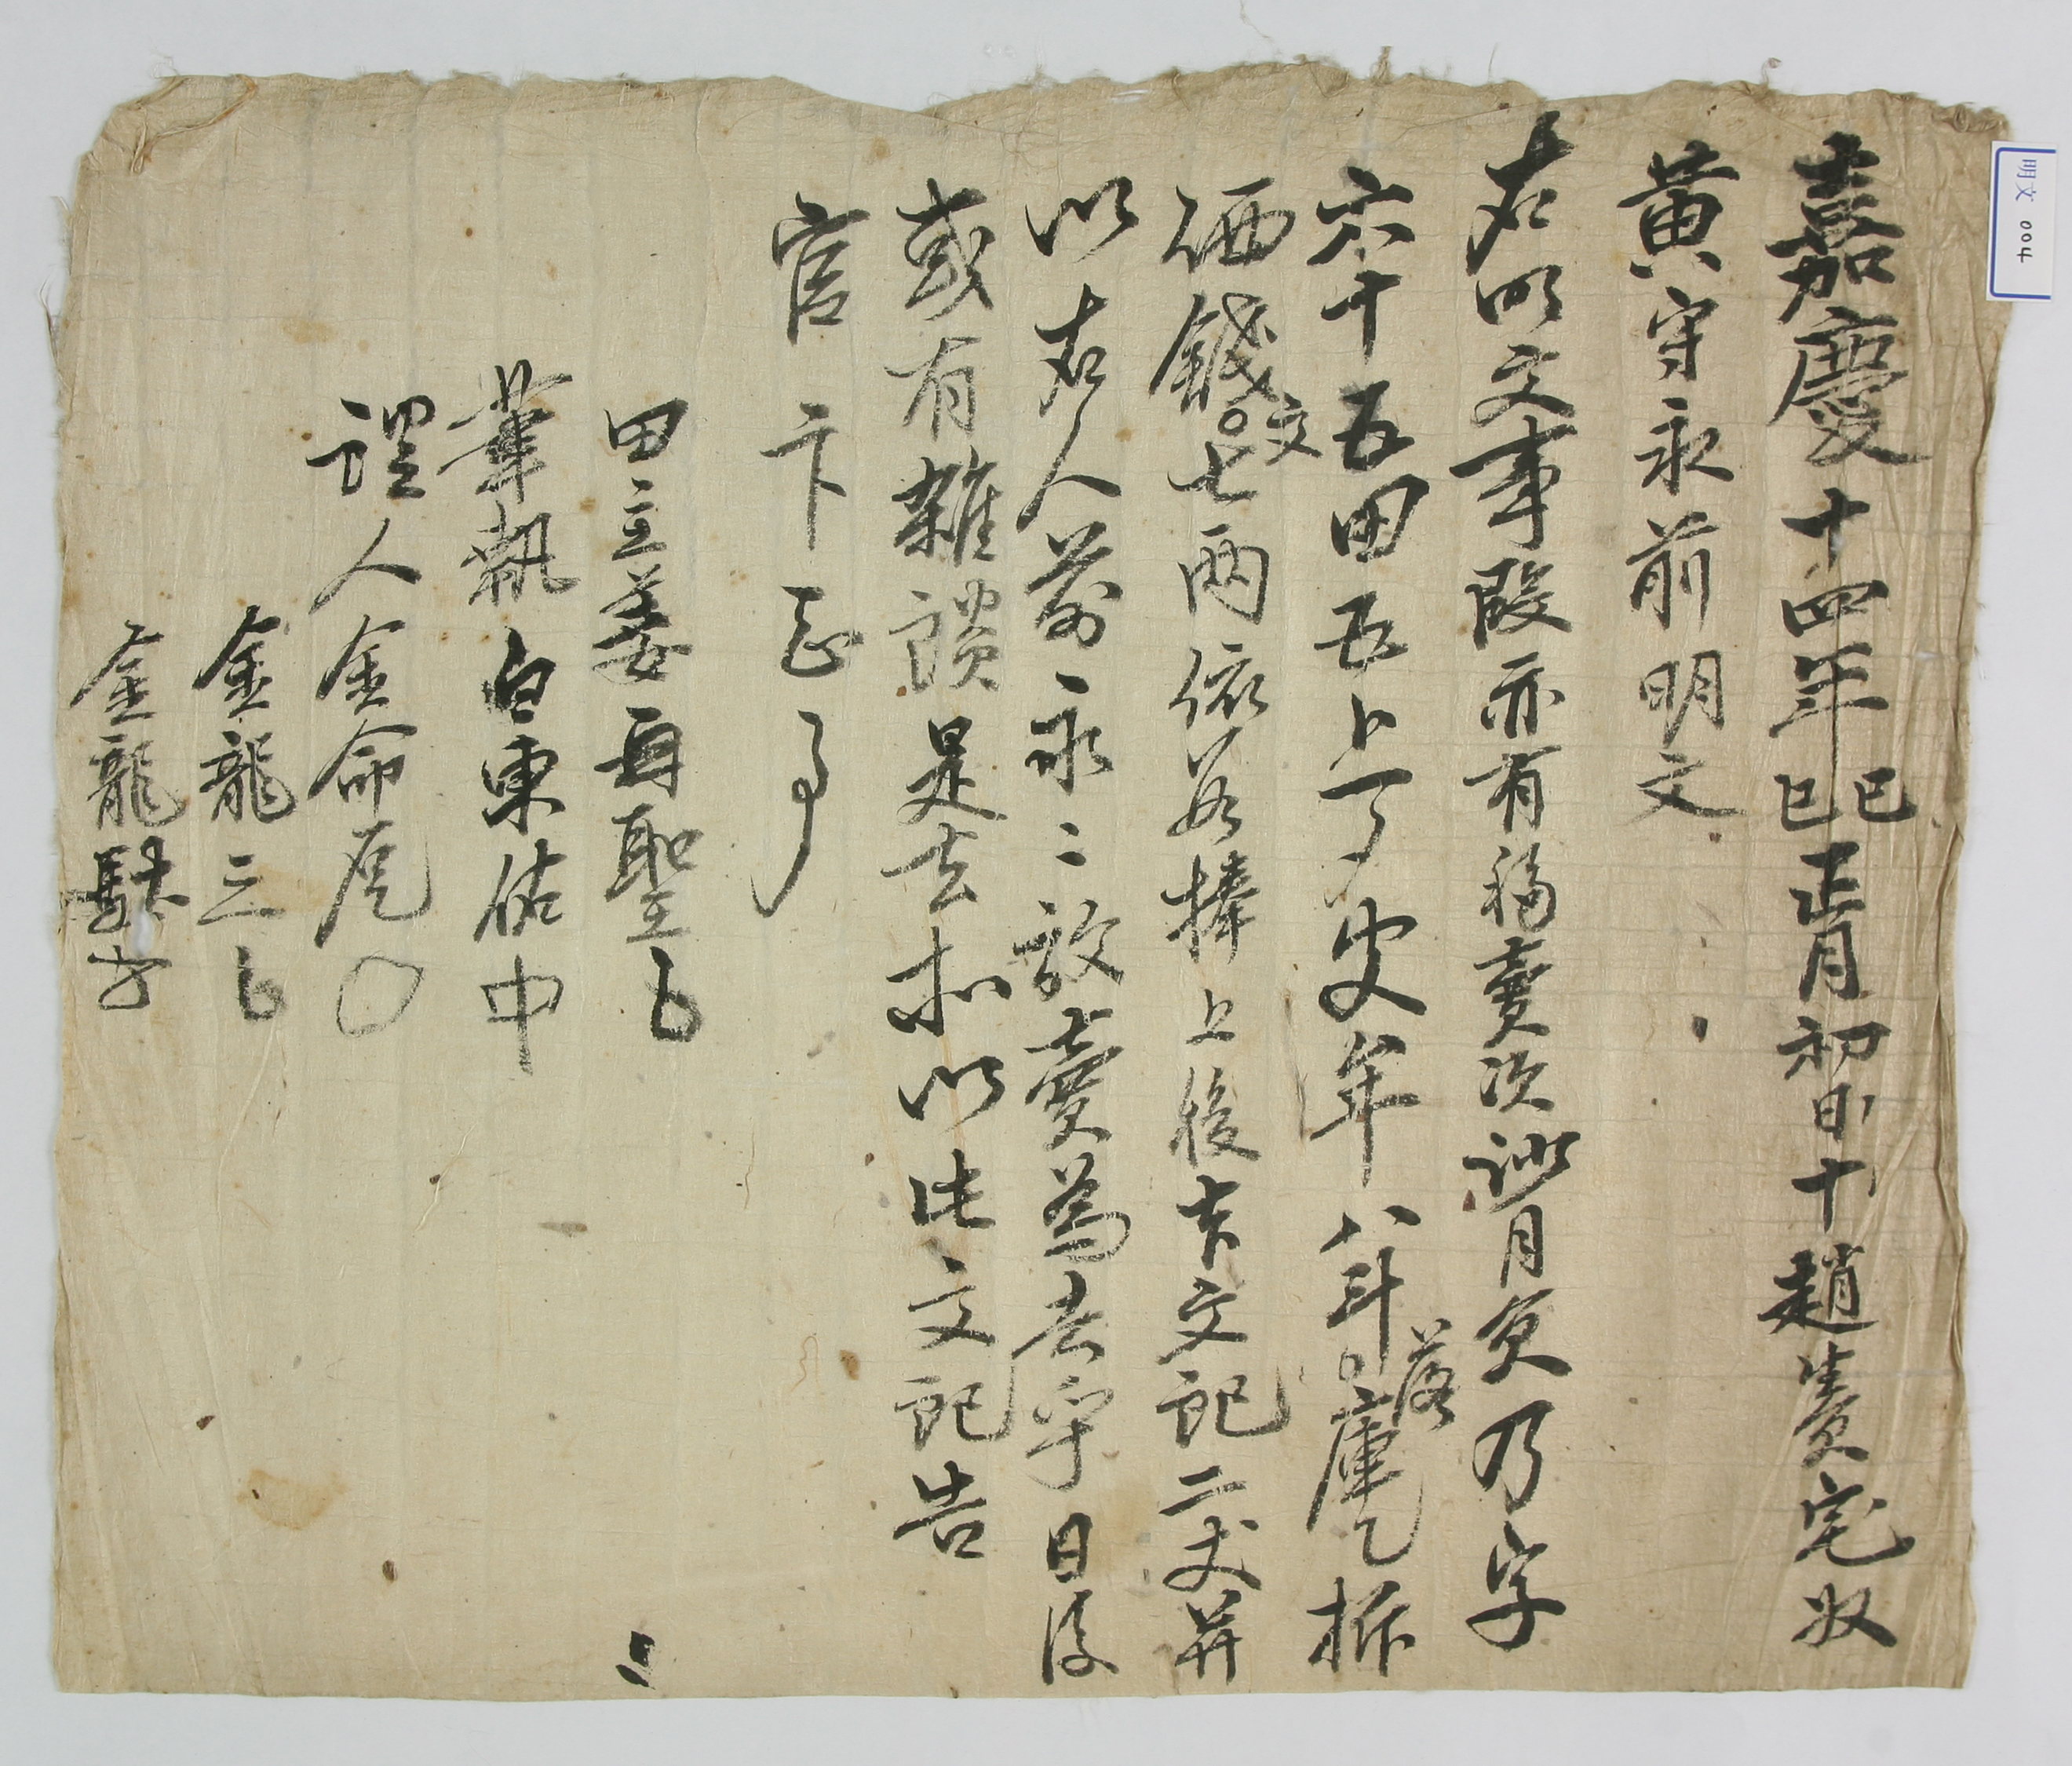 嘉慶十四年己巳正月初十日趙賛宅奴
黃守永前明文
右明文事段亦有穏賣次訟月員乃字
六十五田五卜了皮牟八斗落庫乚折
価錢文七兩依數捧上後本文記二丈并
以右人前永〻放賣為去乎日後
或有雜談是去木以此文記告
官卞正事
田主姜再聖
筆執白東佑
證人金命虎
金龍三
金龍䭾
明文 004